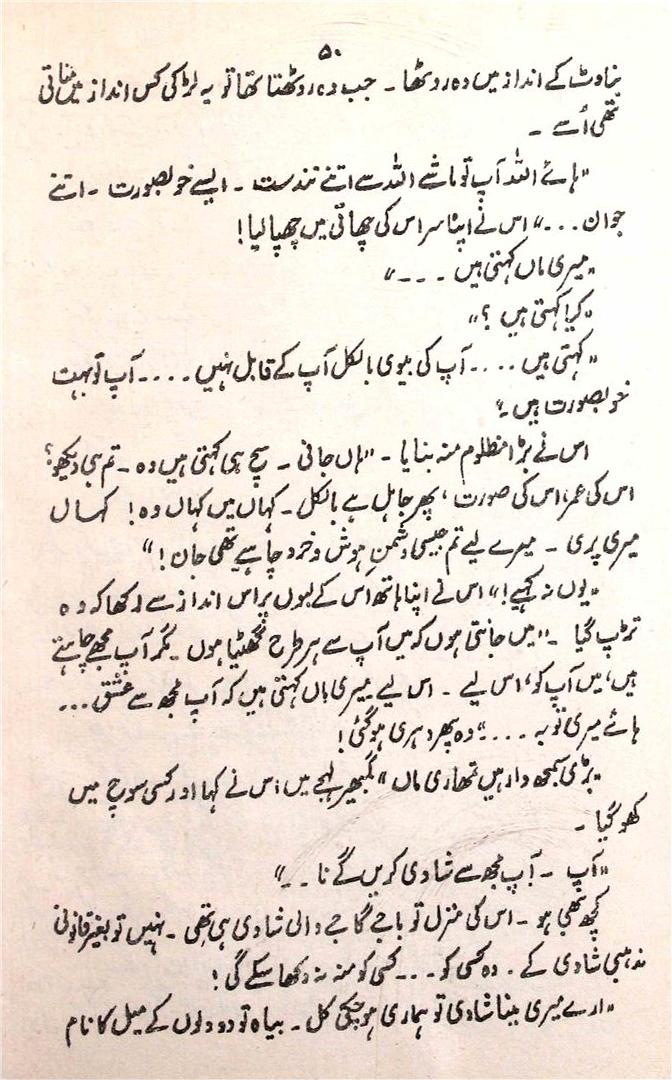 ۵۰
بناوٹ کے انداز میں وہ روٹھا ۔ جب وہ روٹھتا تھا تو یہ لڑکی کس انداز میں مناتی
تھی اُسے ۔
"ہائے اللہ آپ تو ماشے اللہ سے اتنے تندرست ۔ ایسے خوبصورت ۔ اتنے
جوان ...." اس نے اپنا سر اس کی چھاتی میں چھپا لیا!
"میری ماں کہتی ہیں ۔۔۔"
"کیا کہتی ہیں ؟"
"کہتی ہیں .... آپ کی بیوی بالکل آپ کے قابل نہیں .... آپ تو بہت
خوبصورت ہیں ۔"
اس نے بڑا مظلوم منہ بنایا ۔ "ہاں جانی ۔ سچ ہی کہتی ہیں وہ ۔ تم ہی دیکھو؟
اس کی عمر، اس کی صورت، پھر جاہل ہے بالکل ۔ کہاں میں کہاں وہ! کہاں
میری پری ۔ میرے لیے تم جیسی دشمنِ ہوش و خرد چاہیے تھی جان!"
"یوں نہ کہیے!" اس نے اپنا ہاتھ اس کے لبوں پر اس انداز سے رکھا کہ وہ
تڑپ گیا ۔ "میں جانتی ہوں کہ میں آپ سے ہر طرح گھٹیا ہوں ۔ مگر آپ مجھے چاہتے
ہیں، میں آپ کو، اس لیے ۔ اس لیے میری ماں کہتی ہیں کہ آپ مجھ سے عشق ...
ہائے میری توبہ ...." وہ پھر دہری ہو گئی!
"بڑی سمجھ دار ہیں تمھاری ماں" گمبھیر لہجے میں اس نے کہا اور کسی سوچ میں
کھو گیا ۔
"آپ ۔ آپ مجھ سے شادی کریں گے نا ۔۔"
کچھ بھی ہو ۔ اس کی منزل تو باجے گاجے والی شادی ہی تھی ۔ نہیں تو بغیر قانونی
مذہبی شادی کے ۔ وہ کسی کو ۔۔۔ کسی کو منہ نہ دکھا سکے گی!
"ارے میری بینا شادی تو ہماری ہو چکی کل ۔ بیاہ تو دو دلوں کے میل کا نام